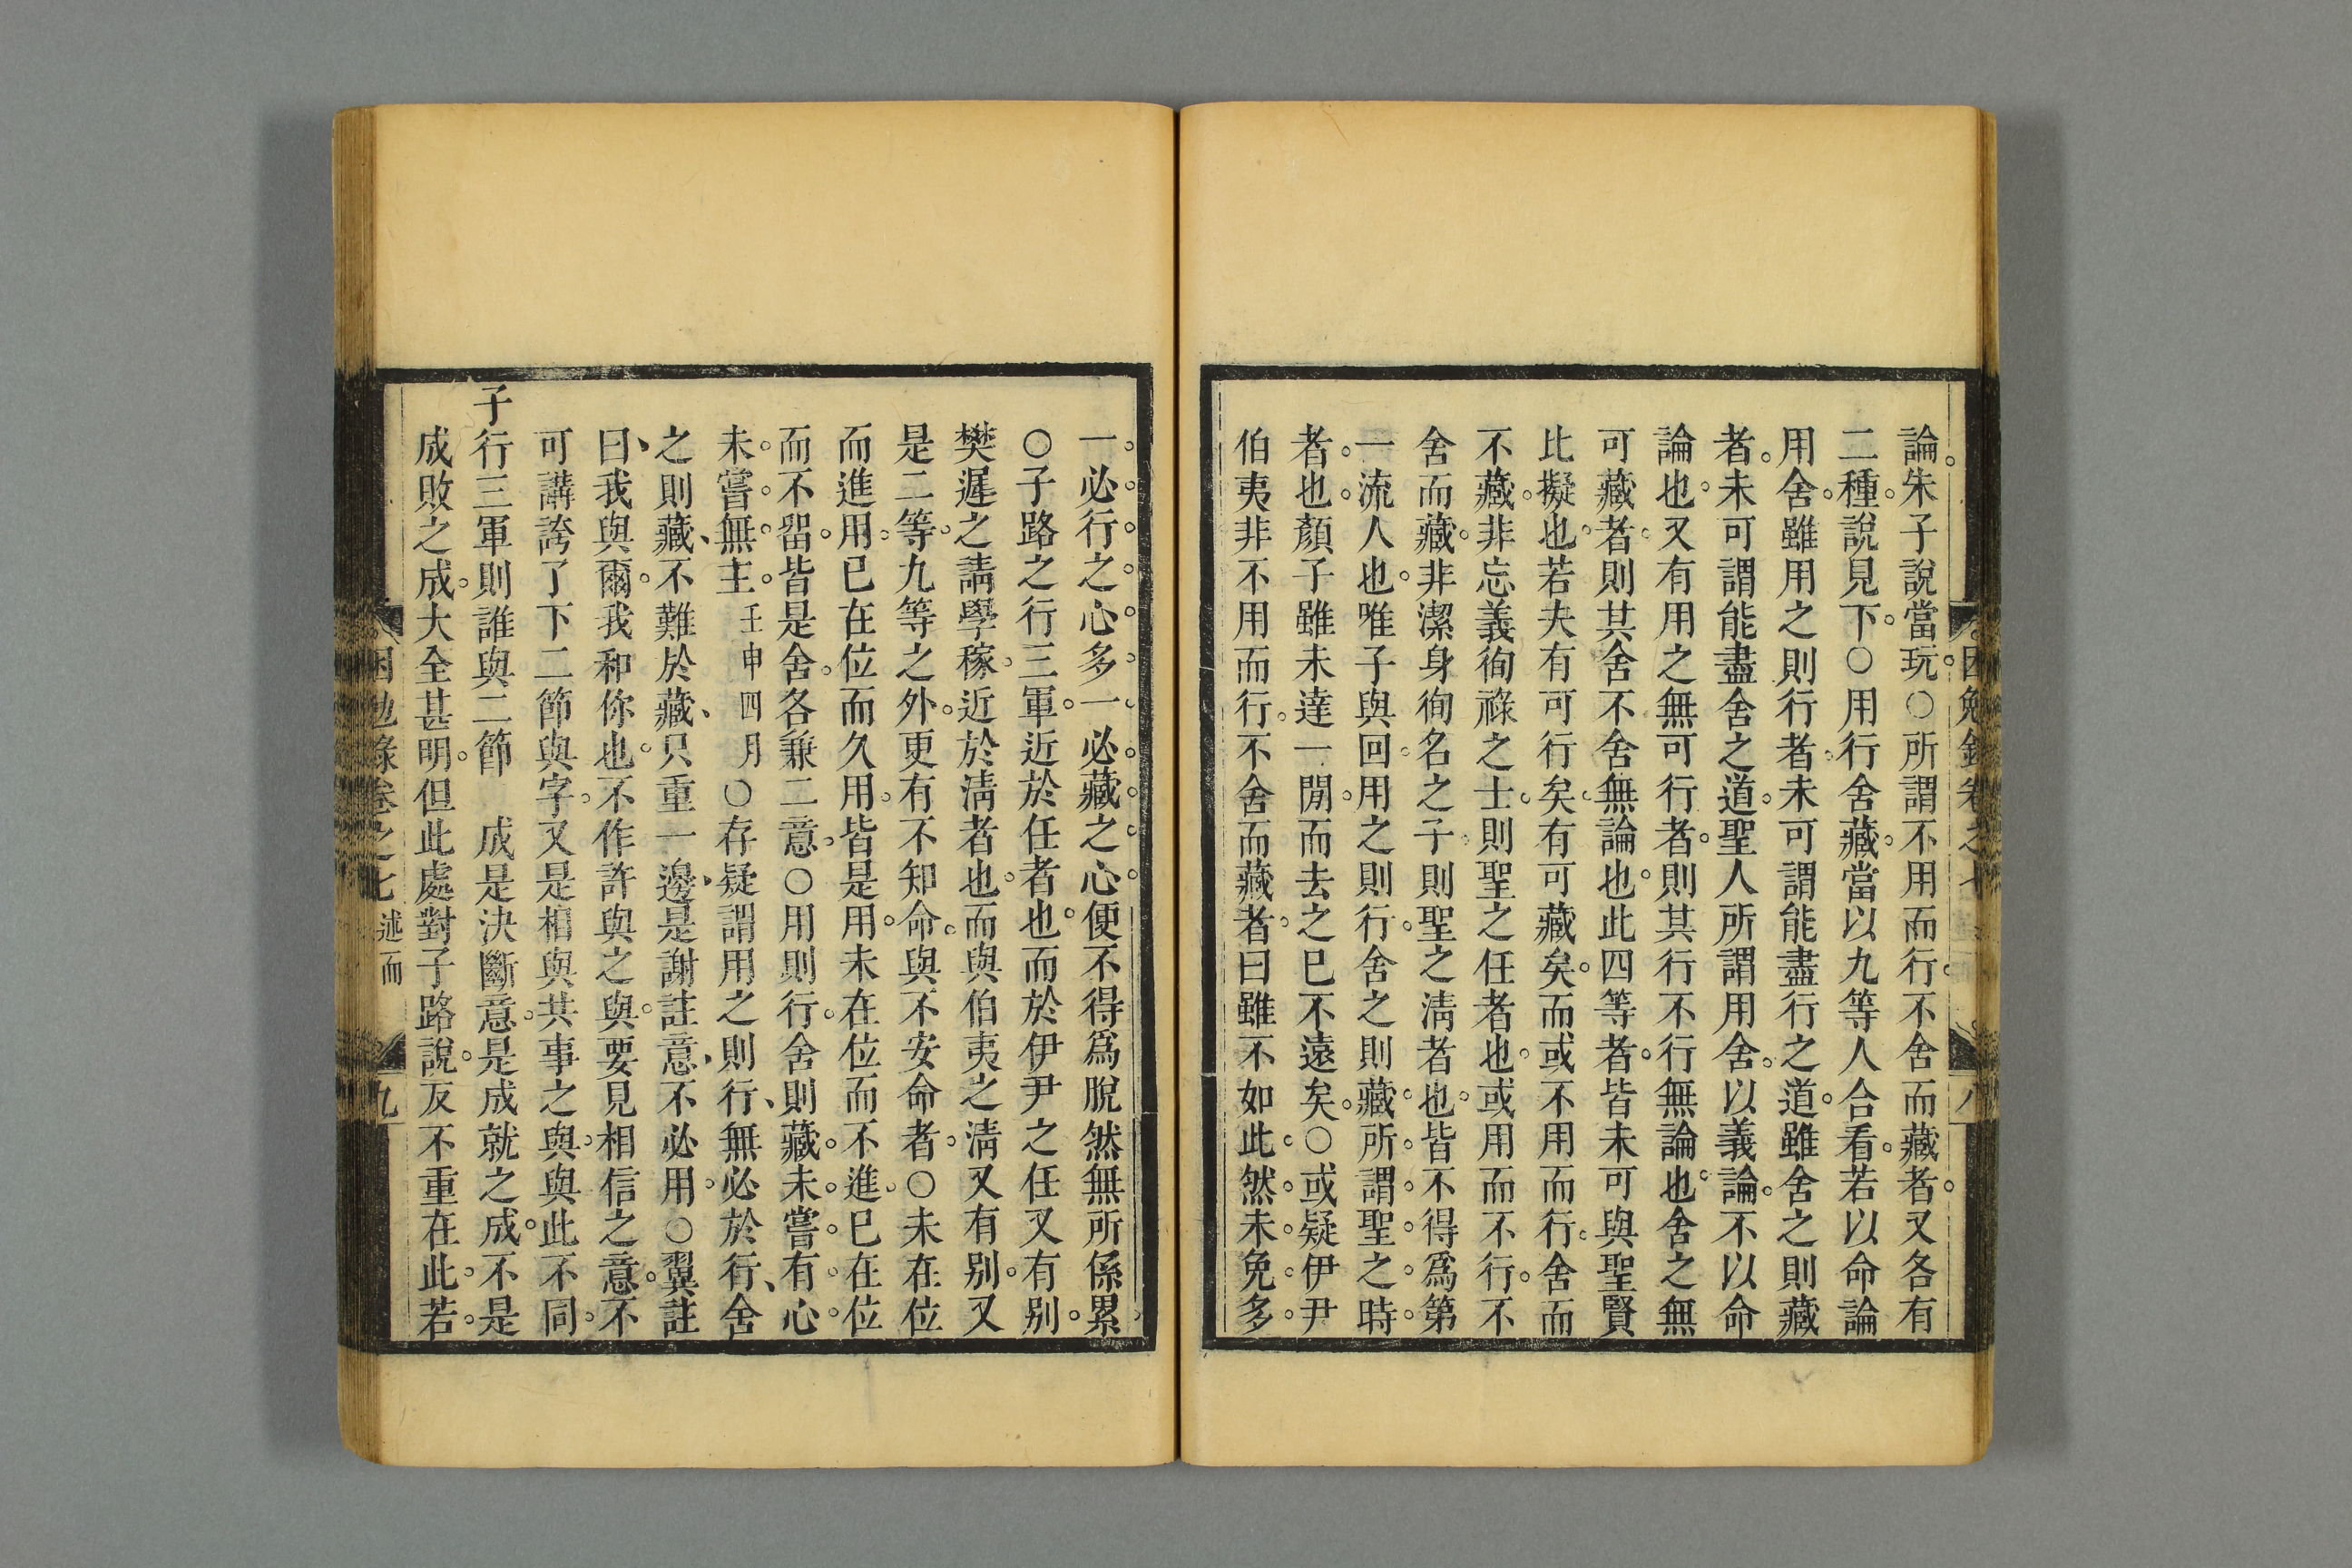 論朱子說當玩○所謂不用而行不舍而藏者又各有
二種說見下○用行舍藏當以九等人合看若以命論
用舍雖用之則行者未可謂能盡行之道雖舍之則藏
者未可謂能盡舍之道聖人所謂用舍以義論不以命
論也又有用之無可行者則其行不行無論也舍之無
可藏者則其舍不舍無論也此四等者皆未可與聖賢
比擬也若夫有可行矣有可藏矣而或不用而行舍而
不藏非忘義徇祿之士則聖之任者也或用而不行不
舍而藏非潔身徇名之子則聖之淸者也皆不得爲第
一流人也唯子與回用之則行舍之則藏所謂聖之時
者也顏子雖未達一閒而去之已不遠矣○或疑伊尹
伯夷非不用而行不舍而藏者曰雖不如此然未免多
一必行之心多一必藏之心便不得爲脫然無所係累
○子路之行三軍近於任者也而於伊尹之任又有别
樊遲之請學稼近於淸者也而與伯夷之淸又有别又
是二等九等之外更有不知命與不安命者○未在位
而進用已在位而久用皆是用未在位而不進已在位
而不留皆是舍各兼二意○用則行舍則藏未嘗有心
未嘗無主壬申四月○存疑謂用之則行無必於行舍
之則藏不難於藏只重一邊是謝註意不必用○翼註
曰我與爾我和你也不作許與之與要見相信之意不
可講誇了下二節與字又是相與共事之與與此不同
子行三軍則誰與二節　成是決斷意是成就之成不是
成敗之成大全甚明但此處對子路說反不重在此若
困勉錄卷之七 述而 九